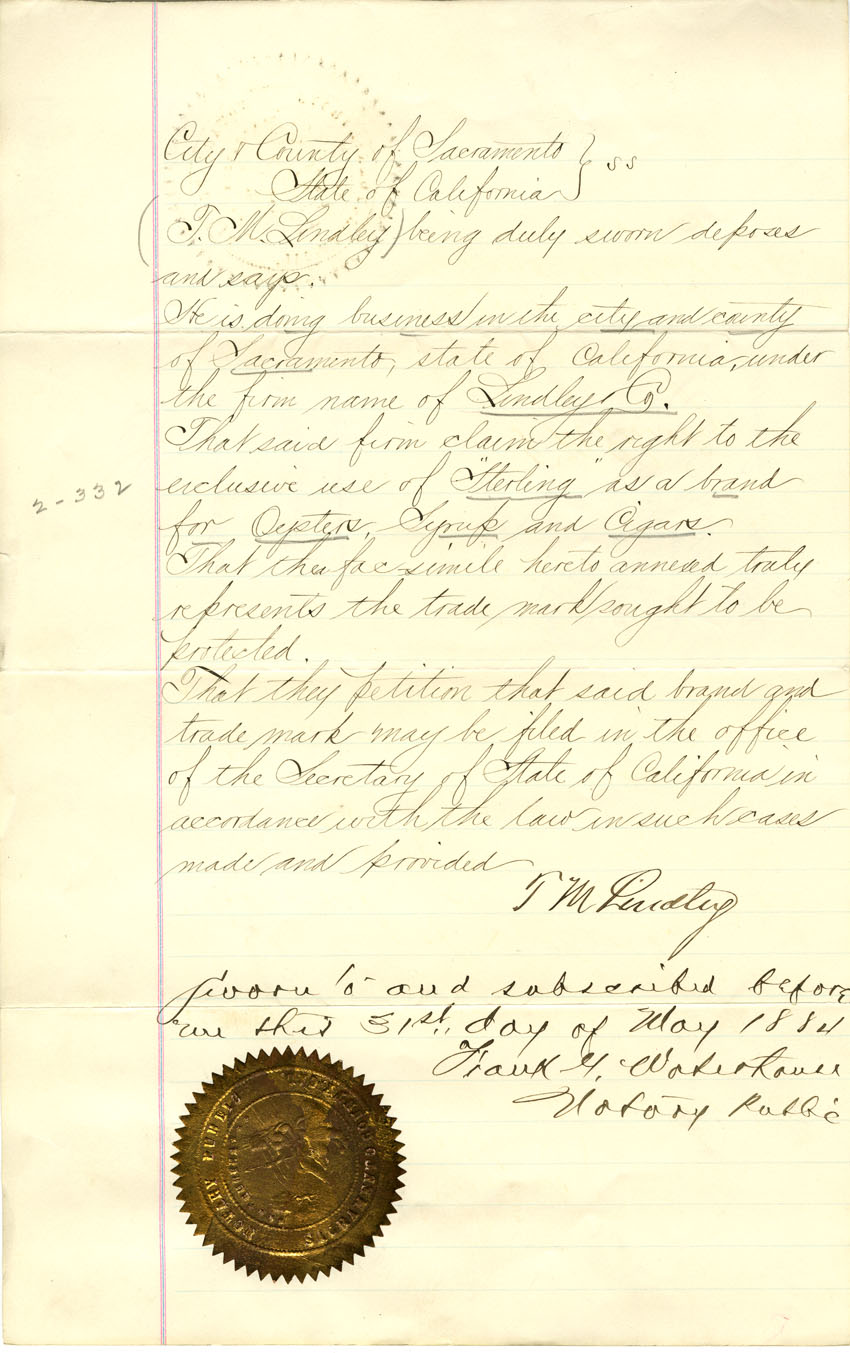 City & County of Sacramento } ss
State of California
(T. M. Lindley) being duly sworn deposes
and says.
He is doing business in the city and county
of Sacramento, state of California, under
the firm name of Lindley & Co.
That said firm claim the right to the
exclusive use of "Sterling" as a brand
for Oysters, Syrup and Cigars.
That the fac-simile hereto annexed truly
represents the trade mark sought to be
protected.
That they petition that said brand and
trade mark may be filed in the office
of the Secretary of State of California in
accordance with the law in such cases
made and provided
2-332
T M Lindley
Sworn to and subscribed before
me this 31st. day of May 1884
Frank Waterhouse
Notary Public
NOTARY PUBLIC
SACRAMENTO